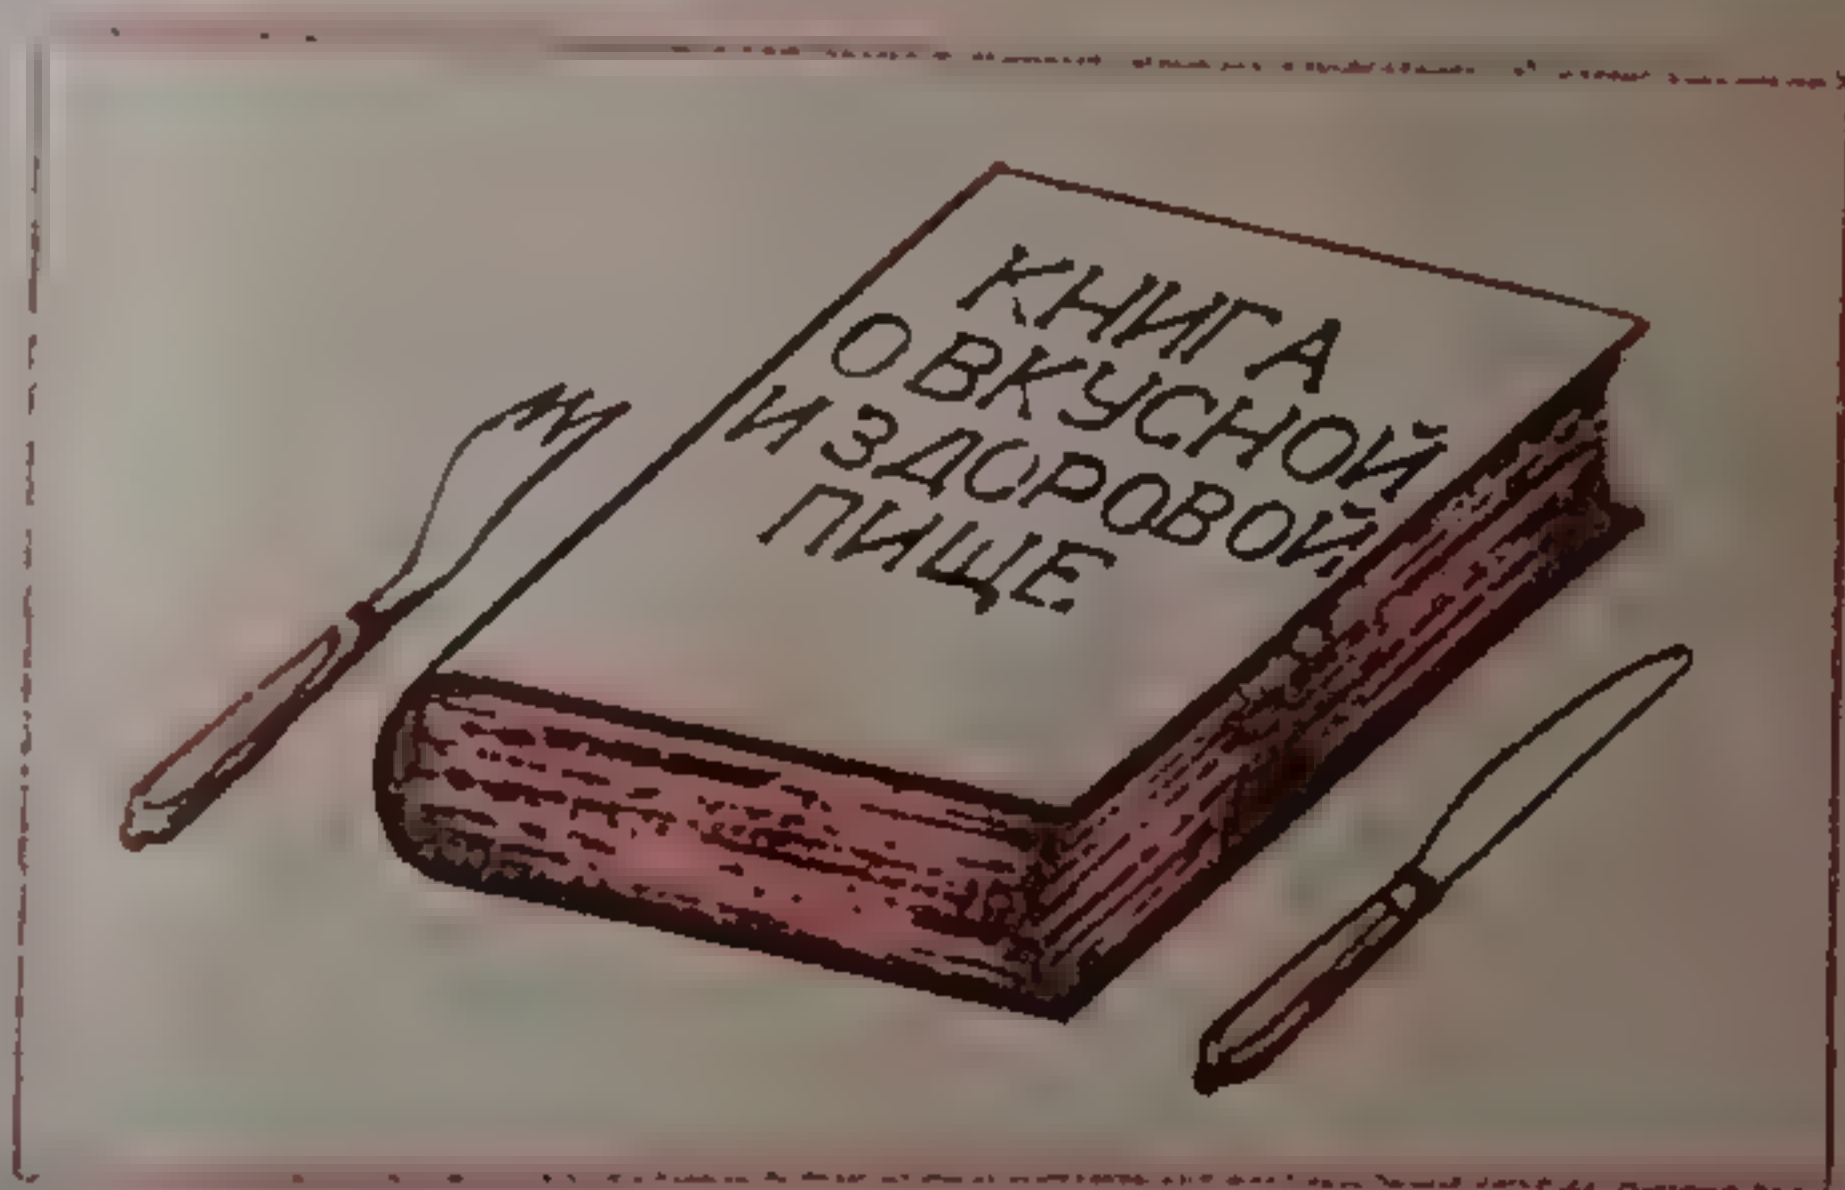 КНИГА
О ВКУСНОЙ
И ЗДОРОВОЙ
ПИЩЕ